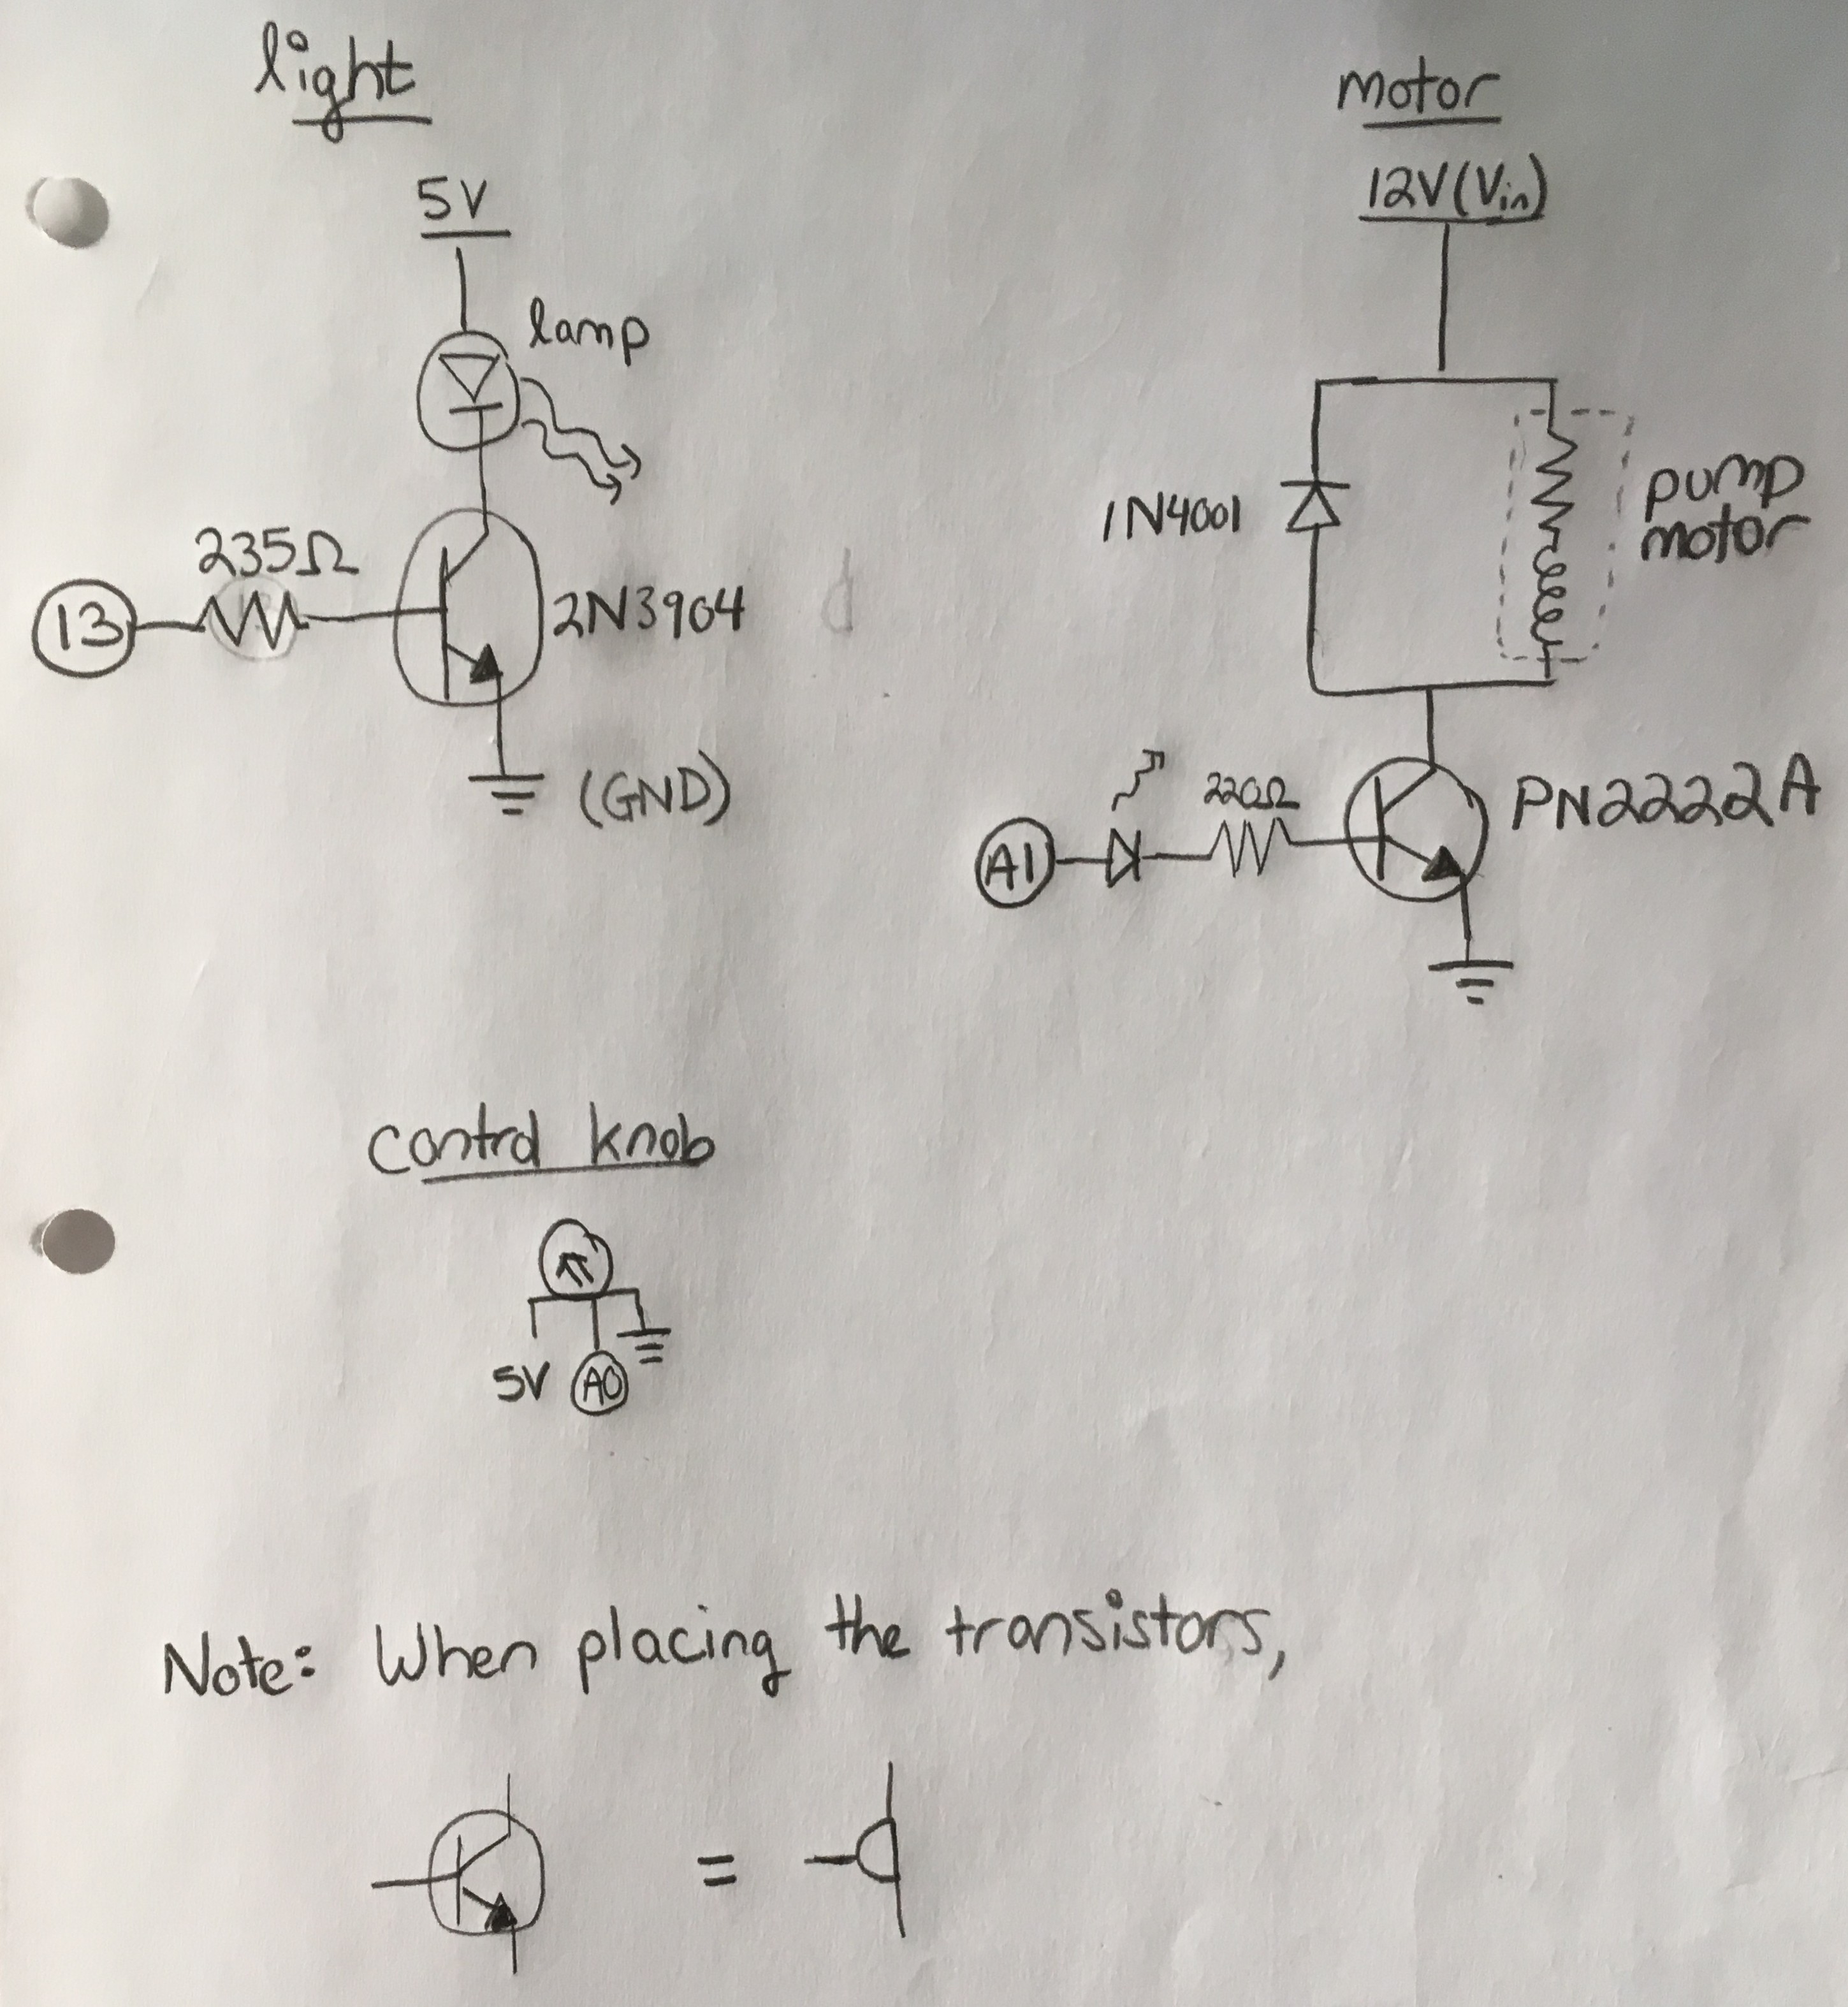 light
5V
lamp
235Ω
13
2N3904
(GND)
motor
12V(Vin)
1N4001
pump
motor
220Ω
A1
PN2222A
control knob
5V
A0
Note: When placing the transistors,
=